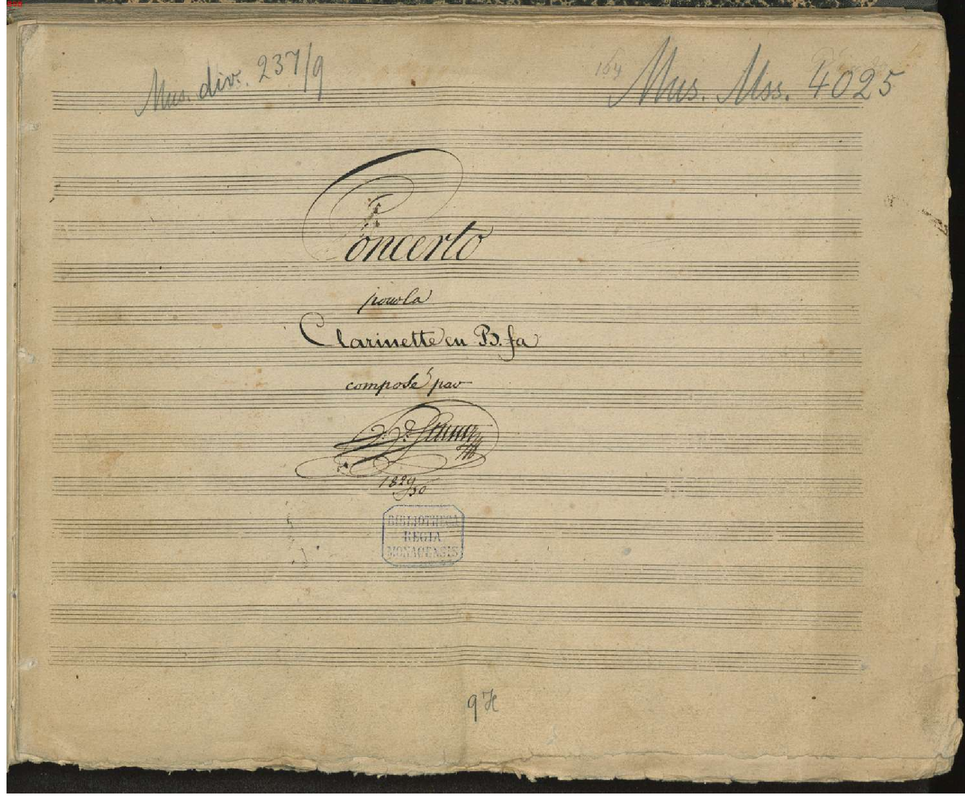 Mus. div. 237/9
Mus. Mss. 4025
Concerto
pour la
Clarinette en B. fa
composé par
1829/30
BIBLIOTHECA
REGIA
MONACENSIS
9 H